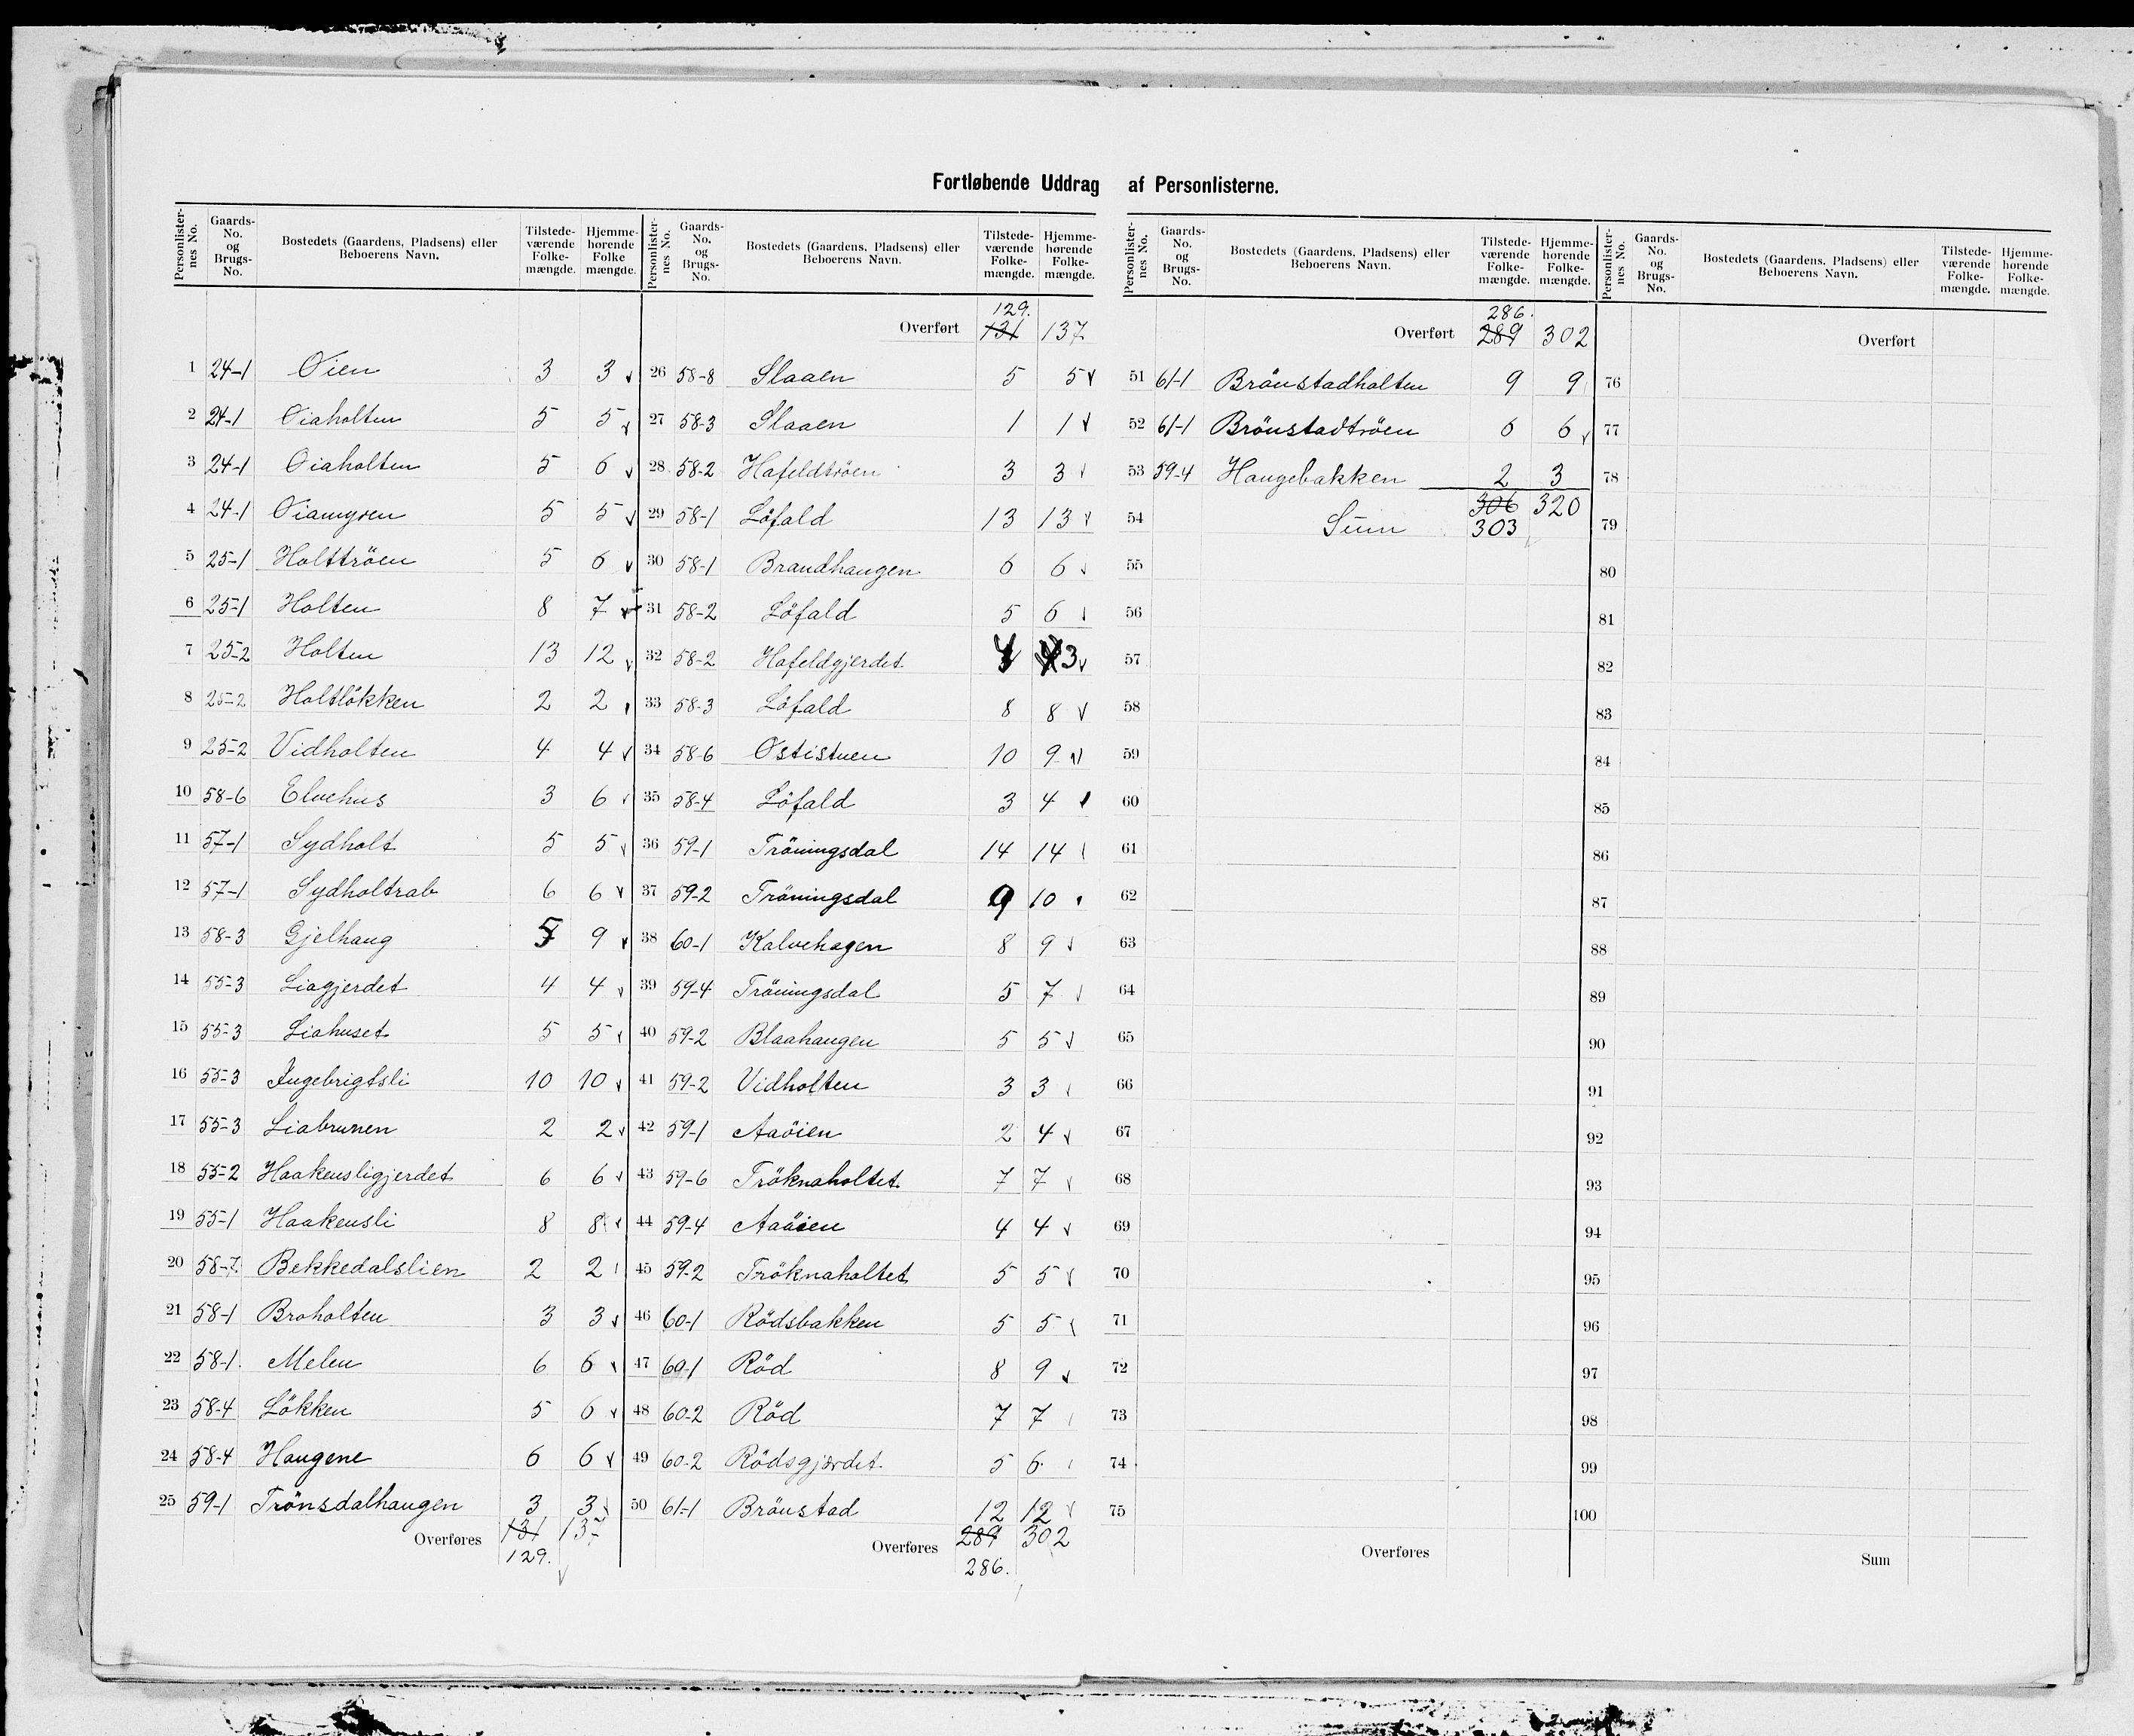 Fortløbende Uddrag af Personlisterne.
Personlisternes No. | Gaards-No. og Brugs-No. | Bostedets (Gaardens, Pladsens) eller Beboerens Navn. | Tilstedeværende Folkemængde. | Hjemmehørende Folke mængde.
1 24-1 Öien 3 3
2 24-1 Öiaholten 5 5
3 24-1 Öiaholten 5 6
4 24-1 Öiamyren 5 5
5 25-1 Holttröen 5 6
6 25-1 Holten 8 7
7 25-2 Holten 13 12
8 25-2 Holtlökken 2 2
9 25-2 Vidholten 4 4
10 58-6 Elvehus 3 6
11 57-1 Sydholt 5 5
12 57-1 Sydholtrab 6 6
13 58-3 Gjelhaug 5 9
14 55-3 Liagjerdet 4 4
15 55-3 Liahuset 5 5
16 55-3 Ingebrigtsli 10 10
17 55-3 Liabrunen 2 2
18 55-2 Haakensligjerdet 6 6
19 55-1 Haakensli 8 8
20 58-7 Bekkedalslien 2 2
21 58-1 Broholten 3 3
22 58-1. Melen 6 6
23 58-4 Lökken 5 6
24 58-4 Haugene 6 6
25 59-1 Trönsdalhaugen 3 3
Overføres 131 137
129.
Personlisternes No. | Gaards-No. og Brugs-No. | Bostedets (Gaardens, Pladsens) eller Beboerens Navn. | Tilstedeværende Folkemængde. | Hjemmehørende Folkemængde.
129.
Overført 131 137
26 58-8 Slaaen 5 5
27 58-3 Slaaen 1 1
28 58-2 Hafeldtröen 3 3
29 58-1 Löfald 13 13
30 58-1 Brandhaugen 6 6
31 58-2 Löfald 5 6
32 58-2 Hafeldgjerdet 3
33 58-3 Löfald 8 8
34 58-6 Östistuen 10 9
35 58-4 Löfald 3 4
36 59-1 Tröningsdal 14 14
37 59-2 Tröningsdal 9 10
38 60-1 Kalvehagen 8 9
39 59-4 Tröningsdal 5 7
40 59-2 Blaahaugen 5 5
41 59-2 Vidholten 3 3
42 59-1 Aaöien 2 4
43 59-6 Tröknaholtet 7 7
44 59-4 Aaöien 4 4
45 59-2 Tröknaholtet 5 5
46 60-1 Rödsbakken 5 5
47 60-1 Röd 8 9
48 60-2 Röd 7 7
49 60-2 Rödsgjærdet 5 6
50 61-1 Brönstad 12 12
Overføres 289 302
286.
Personlisternes No. | Gaards-No. og Brugs-No. | Bostedets (Gaardens, Pladsens) eller Beboerens Navn. | Tilstedeværende Folkemængde. | Hjemmehørende Folkemængde.
286.
Overført 289 302
51 61-1 Brönstadholten 9 9
52 61-1 Brönstadtröen 6 6
53 59-4 Haugebakken 2 3
306 320
54 Sum 303
55
56
57
58
59
60
61
62
63
64
65
66
67
68
69
70
71
72
73
74
75
Overføres
Personlisternes No. | Gaards-No. og Brugs-No. | Bostedets (Gaardens, Pladsens) eller Beboerens Navn. | Tilstedeværende Folkemængde. | Hjemmehørende Folkemængde.
Overført
76
77
78
79
80
81
82
83
84
85
86
87
88
89
90
91
92
93
94
95
96
97
98
99
100
Sum